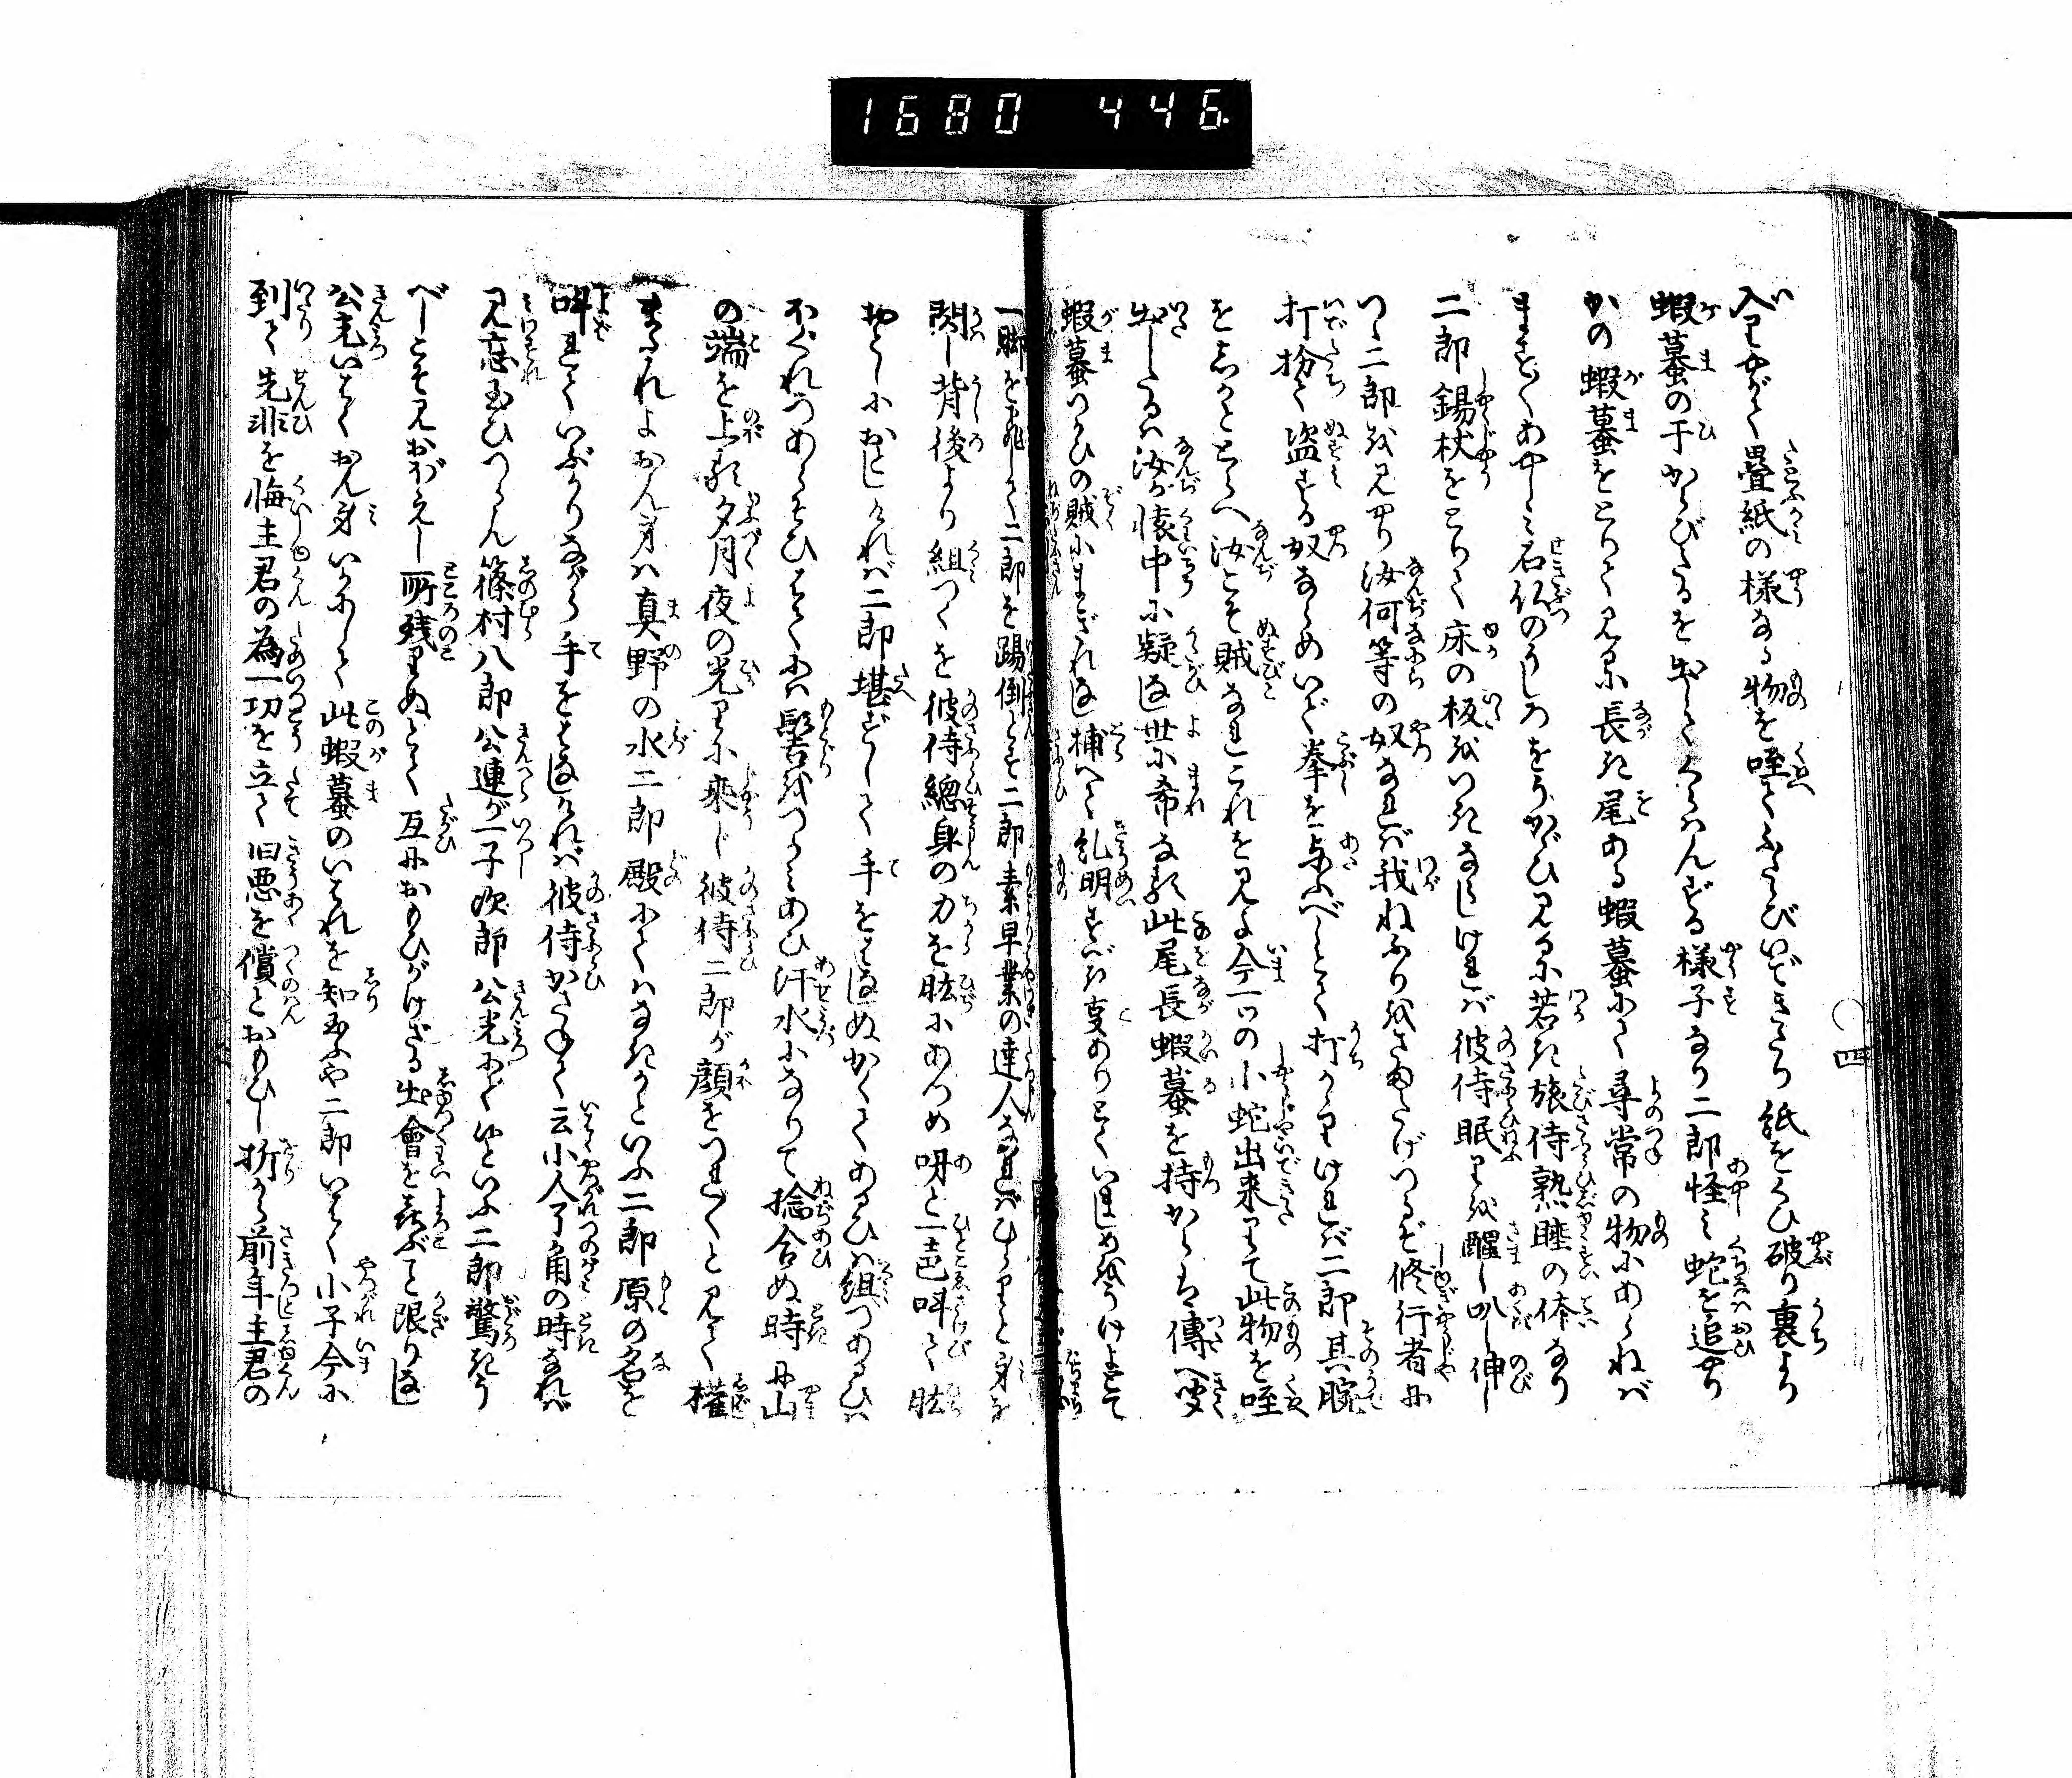 1680 446.
入りやがて畳紙の様なる物を咥てふたゝびいできたり紙をくひ破り裏より
蝦蟇の干からびたるを出してくらはんずる様子なり二郎怪み蛇を追やり
かの蝦蟇をとりて見るに長き尾ある蝦蟇にて尋常の物にあらねば
ますますあやしみ石仏のうしろをうかゞひ見るに若き旅侍熟睡の体なり
二郎錫杖をとりて床の板をつきならしければ彼侍眠りを醒し叺し伸し
つゝ二郎を見やり汝何等の奴なれば我ねふりをさまたげつるぞ修行者に
打扮て盗する奴ならめいで拳を与ふべしとて打かゝりければ二郎其腕
をしかととらへ汝こそ賊なれこれを見よ今一つの小蛇出来りて此物を咥
出したるは汝が懐中に疑なし世に希なる此尾長蝦蟇を持からは傳へ聞
蝦蟇つかひの賊にまぎれなし捕へて糺明すべき事ありとていましめをうけよとて
一脚を飛して二郎を踢倒さんとす二郎素早業の達人なればひらりと身を
閃し背後より組つくを彼侍總身の力を肱にあつめ呀と一声叫て肱
おとしにおとしければ二郎堪ずして手をはなしぬかくてあるひは組つあるひは
ほぐれつあらそひはてには髻をつかみあひ汗水になりて捻合ぬ時に山
の端を上る夕月夜の光りに乗じ彼侍二郎が顔をつれづれと見て權
またれよおん身は真野の水二郎殿にてはなきかといふ二郎原の名を
呼れていぶかりながら手をはなしければ彼侍かさねて云小人了角の時なれば
見忘玉ひつらん篠村八郎公連が一子次郎公光にて候といふ二郎驚きう
べしこそ見おぼえし所残りぬとて互におもひがけざる出會を喜ぶこと限りなし
公光いはくおん身いかにして此蝦蟇のいはれを知玉ふや二郎いはく小子今に
到て先非を悔主君の為一功を立て旧悪を償んとおもひし折から前年主君の
四